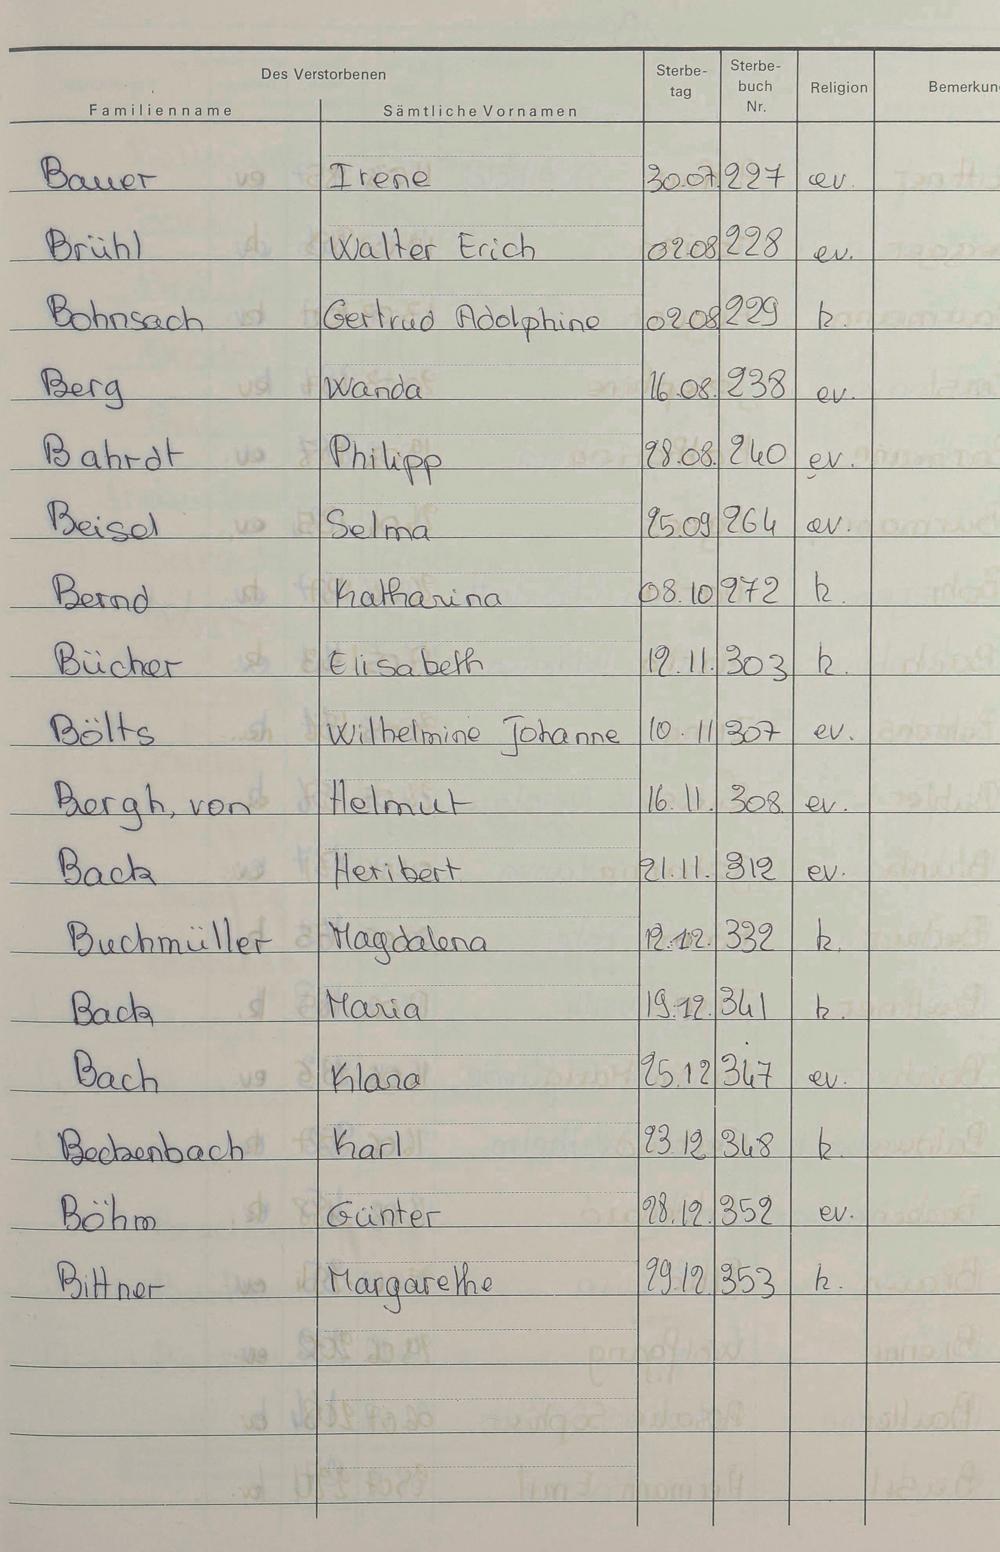 Des Verstorbenen
Familienname Sämtliche Vornamen Sterbe-tag Sterbe-buch Nr. Religion Bemerkun
Bauer Irene 30.07 227 ev.
Brühl Walter Erich 02.08 228 ev.
Bohnsach Gertrud Adolphine 02.08 229 k.
Berg Wanda 16.08. 238 ev.
Bahrdt Philipp 28.08. 240 ev.
Beisel Selma 25.09 264 ev.
Bernd Katharina 08.10 272 k.
Bücher Elisabeth 12.11. 303 k.
Bölts Wilhelmine Johanne 10.11 307 ev.
Bergh, von Helmut 16.11. 308. ev.
Back Heribert 21.11. 312 ev.
Buchmüller Magdalena 12.12. 332 k.
Back Maria 19.12. 341 k.
Bach Klara 25.12 347 ev.
Beckenbach Karl 23.12 348 k.
Böhm Günter 28.12. 352 ev.
Bittner Margarethe 29.12 353 k.